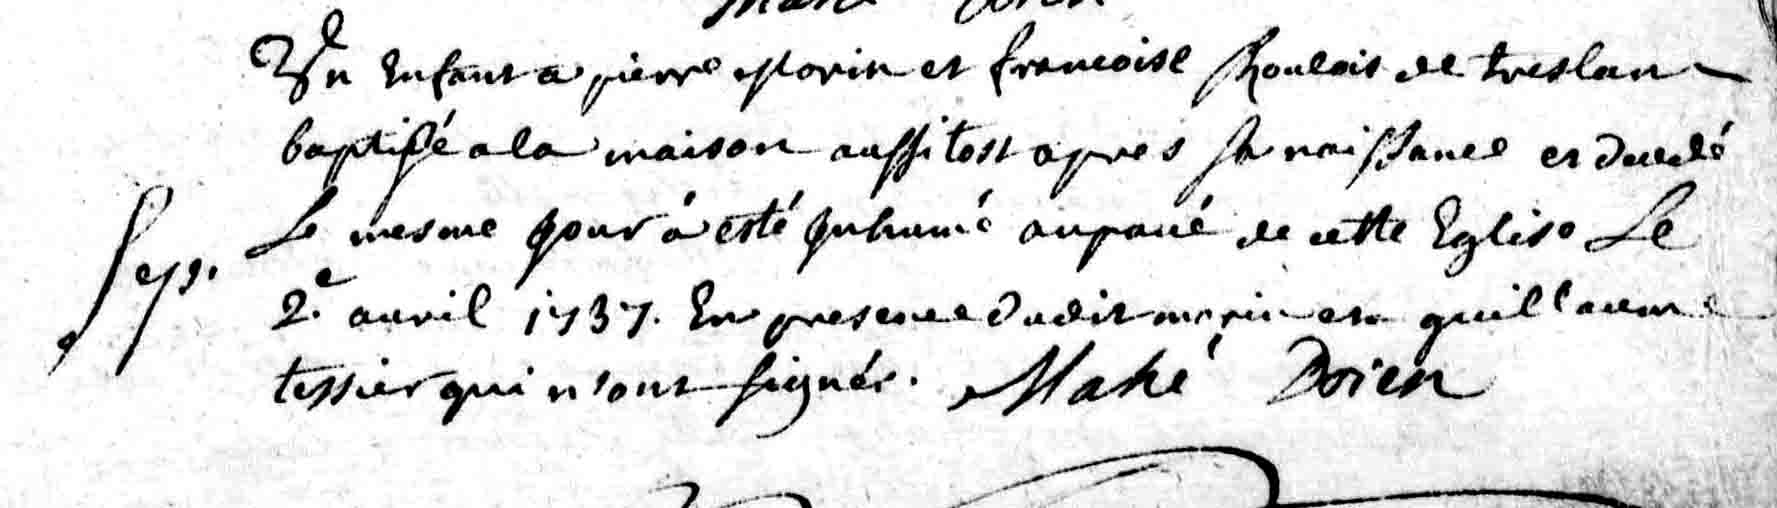 Mahé Doien
Un Enfant a pierre Morin et francoise Roulois de treslan
baptisé a la maison aussi tost apres sa naissance et decedé
Le mesme jour á esté Inhumé au paué de cette Eglise Le
Sep. 2e auril 1737. En presence dudit morin et guillaume
tessier qui n'sont signér. Mahé Doien